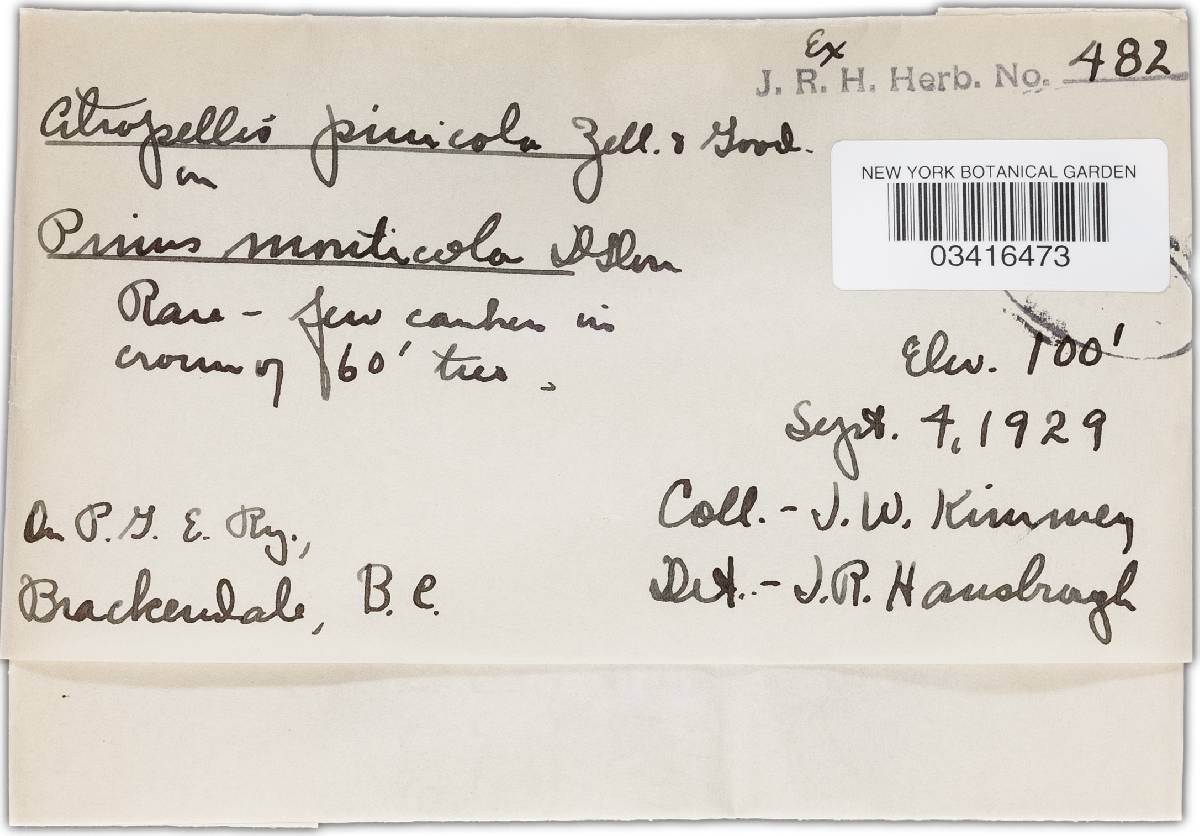 Ex
J. R. H. Herb. No. 482
Atropellis pinicola Zell. & Good.
on
Pinus monticola D Don
NEW YORK BOTANICAL GARDEN
03416473
Rare - few cankers in
crown of 60' tree.
Elev. 100'
Sept. 4, 1929
On P. G. E. Ry.,
Brackendale, B. C.
Coll. - J. W. Kimmey
Det. - J. R. Hansbrough